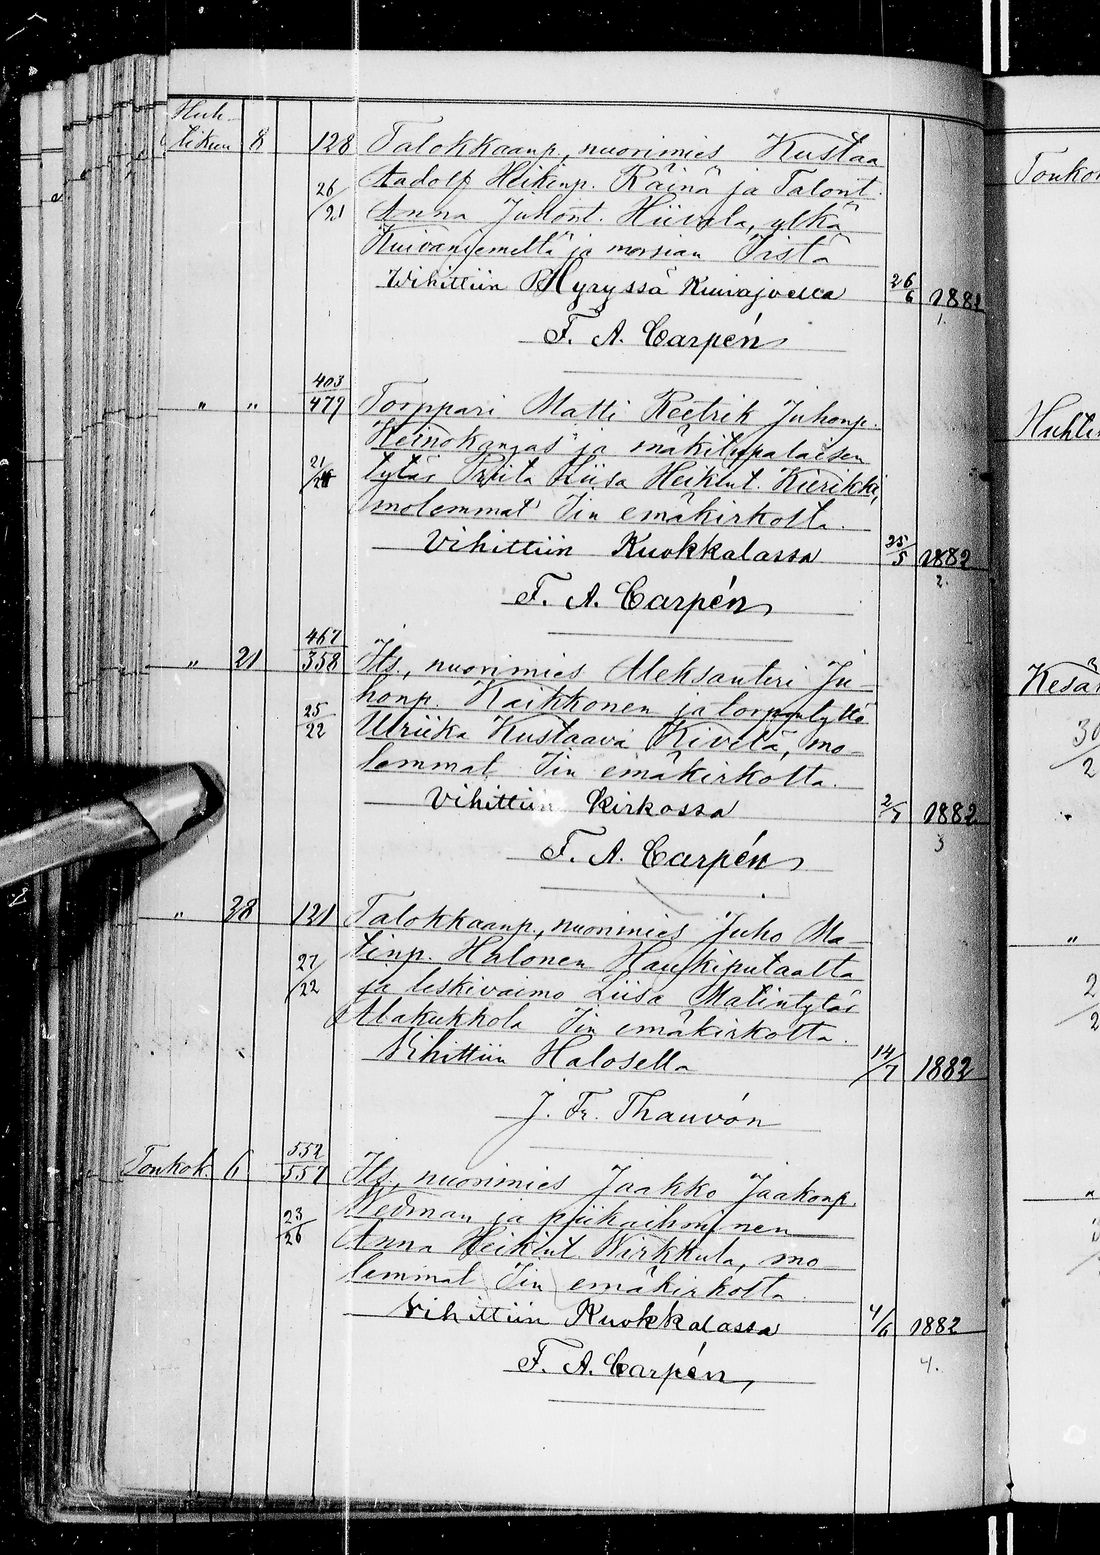 Huh-
tikuu 8 128 Talokkaanp., nuorimies Kustaa
26/21 Aadolf Heikinp. Räinä ja Talont.
Anna Juhont. Hiivala, ylkä
Kuivaniemeltä ja morsian Iistä
Wihittiin Hyryssä Kuivajoella 26/6 1882
1.
F. A. Carpén
" " 403/479 Torppari Matti Reetrik Juhonp.
Heinokangas ja mäkitupalaisen
21/28 tytär Priita Liisa Heikint. Kierikki,
molemmat Iin emäkirkolta.
Vihittiin Kuokkalassa 25/5 1882
2.
F. A. Carpén
" 21 467/358 Its., nuorimies Aleksanteri Ju-
honp. Kaikkonen ja torpantyttö
25/22 Ulriika Kustaava Kivelä, mo-
lemmat Iin emäkirkolta.
Vihittiin Kirkossa 2/7 1882
3
F. A. Carpén
" 28 121 Talokkaanp., nuorimies Juho Ma-
27/22 tinp. Halonen Haukiputaalta
ja leskivaimo Liisa Matintytär
Alakukkola Iin emäkirkolta.
Vihittiin Halosella 14/7 1882
J. Fr. Thauvón
Toukok. 6 552/557 Its., nuorimies Jaakko Jaakonp.
23/26 Wedman ja piikaihminen
Anna Heikint. Wirkkula, mo-
lemmat Iin emäkirkolta.
Vihittiin Kuokkalassa 4/6 1882
4.
F. A. Carpén
Toukok
Huhti
Kesäk
30/2